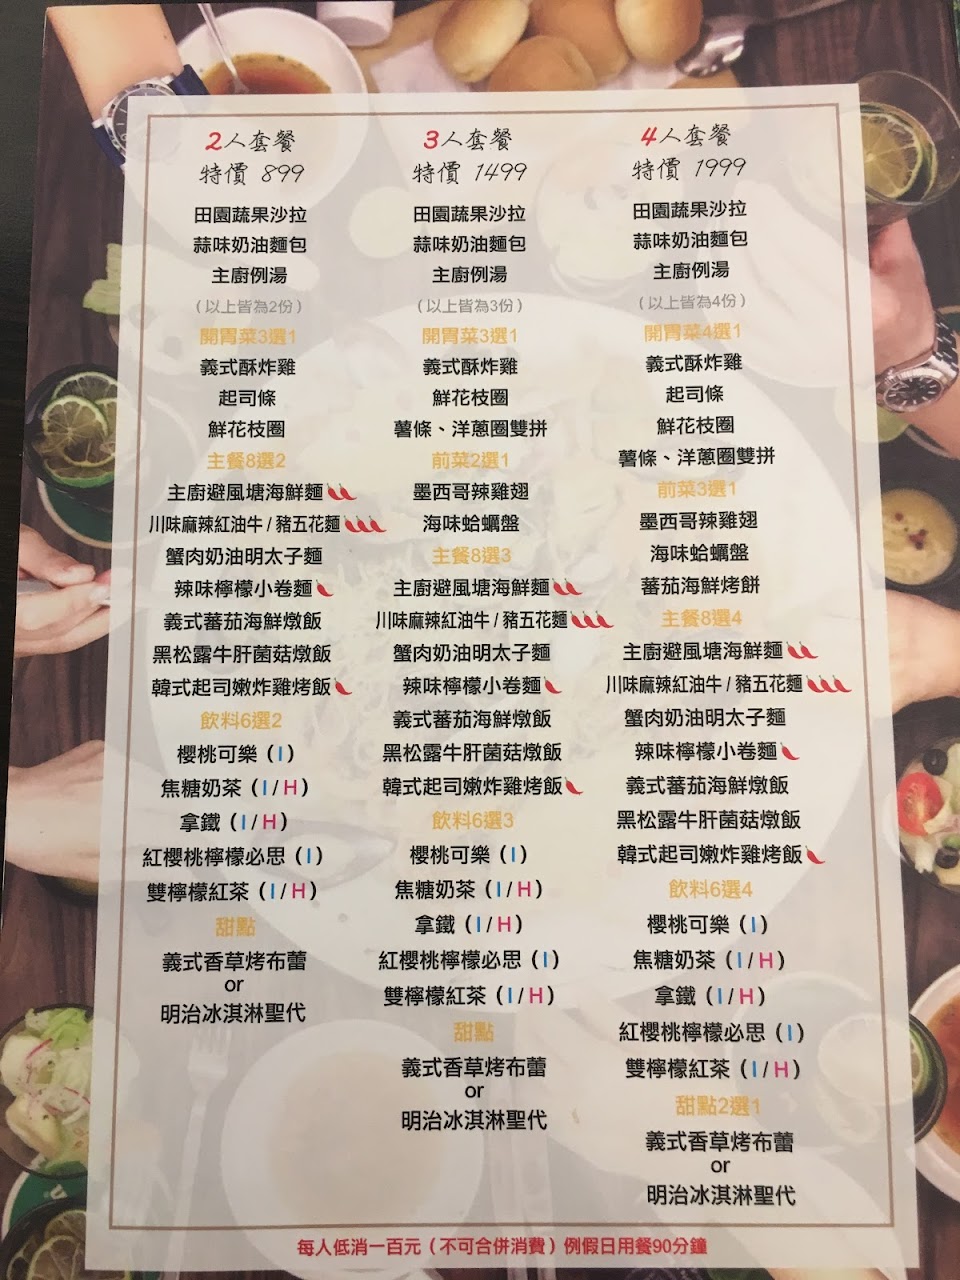 2人套餐
特價 899
田園蔬果沙拉
蒜味奶油麵包
主廚例湯
（以上皆為2份）
開胃菜3選1
義式酥炸雞
起司條
鮮花枝圈
主餐8選2
主廚避風塘海鮮麵
川味麻辣紅油牛 / 豬五花麵
蟹肉奶油明太子麵
辣味檸檬小卷麵
義式蕃茄海鮮燉飯
黑松露牛肝菌菇燉飯
韓式起司嫩炸雞烤飯
飲料6選2
櫻桃可樂（I）
焦糖奶茶（I / H）
拿鐵（I / H）
紅櫻桃檸檬必思（I）
雙檸檬紅茶（I / H）
甜點
義式香草烤布蕾
or
明治冰淇淋聖代
3人套餐
特價 1499
田園蔬果沙拉
蒜味奶油麵包
主廚例湯
（以上皆為3份）
開胃菜3選1
義式酥炸雞
鮮花枝圈
薯條、洋蔥圈雙拼
前菜2選1
墨西哥辣雞翅
海味蛤蠣盤
主餐8選3
主廚避風塘海鮮麵
川味麻辣紅油牛 / 豬五花麵
蟹肉奶油明太子麵
辣味檸檬小卷麵
義式蕃茄海鮮燉飯
黑松露牛肝菌菇燉飯
韓式起司嫩炸雞烤飯
飲料6選3
櫻桃可樂（I）
焦糖奶茶（I / H）
拿鐵（I / H）
紅櫻桃檸檬必思（I）
雙檸檬紅茶（I / H）
甜點
義式香草烤布蕾
or
明治冰淇淋聖代
4人套餐
特價 1999
田園蔬果沙拉
蒜味奶油麵包
主廚例湯
（以上皆為4份）
開胃菜4選1
義式酥炸雞
起司條
鮮花枝圈
薯條、洋蔥圈雙拼
前菜3選1
墨西哥辣雞翅
海味蛤蠣盤
蕃茄海鮮烤餅
主餐8選4
主廚避風塘海鮮麵
川味麻辣紅油牛 / 豬五花麵
蟹肉奶油明太子麵
辣味檸檬小卷麵
義式蕃茄海鮮燉飯
黑松露牛肝菌菇燉飯
韓式起司嫩炸雞烤飯
飲料6選4
櫻桃可樂（I）
焦糖奶茶（I / H）
拿鐵（I / H）
紅櫻桃檸檬必思（I）
雙檸檬紅茶（I / H）
甜點2選1
義式香草烤布蕾
or
明治冰淇淋聖代
每人低消一百元（不可合併消費）例假日用餐90分鐘